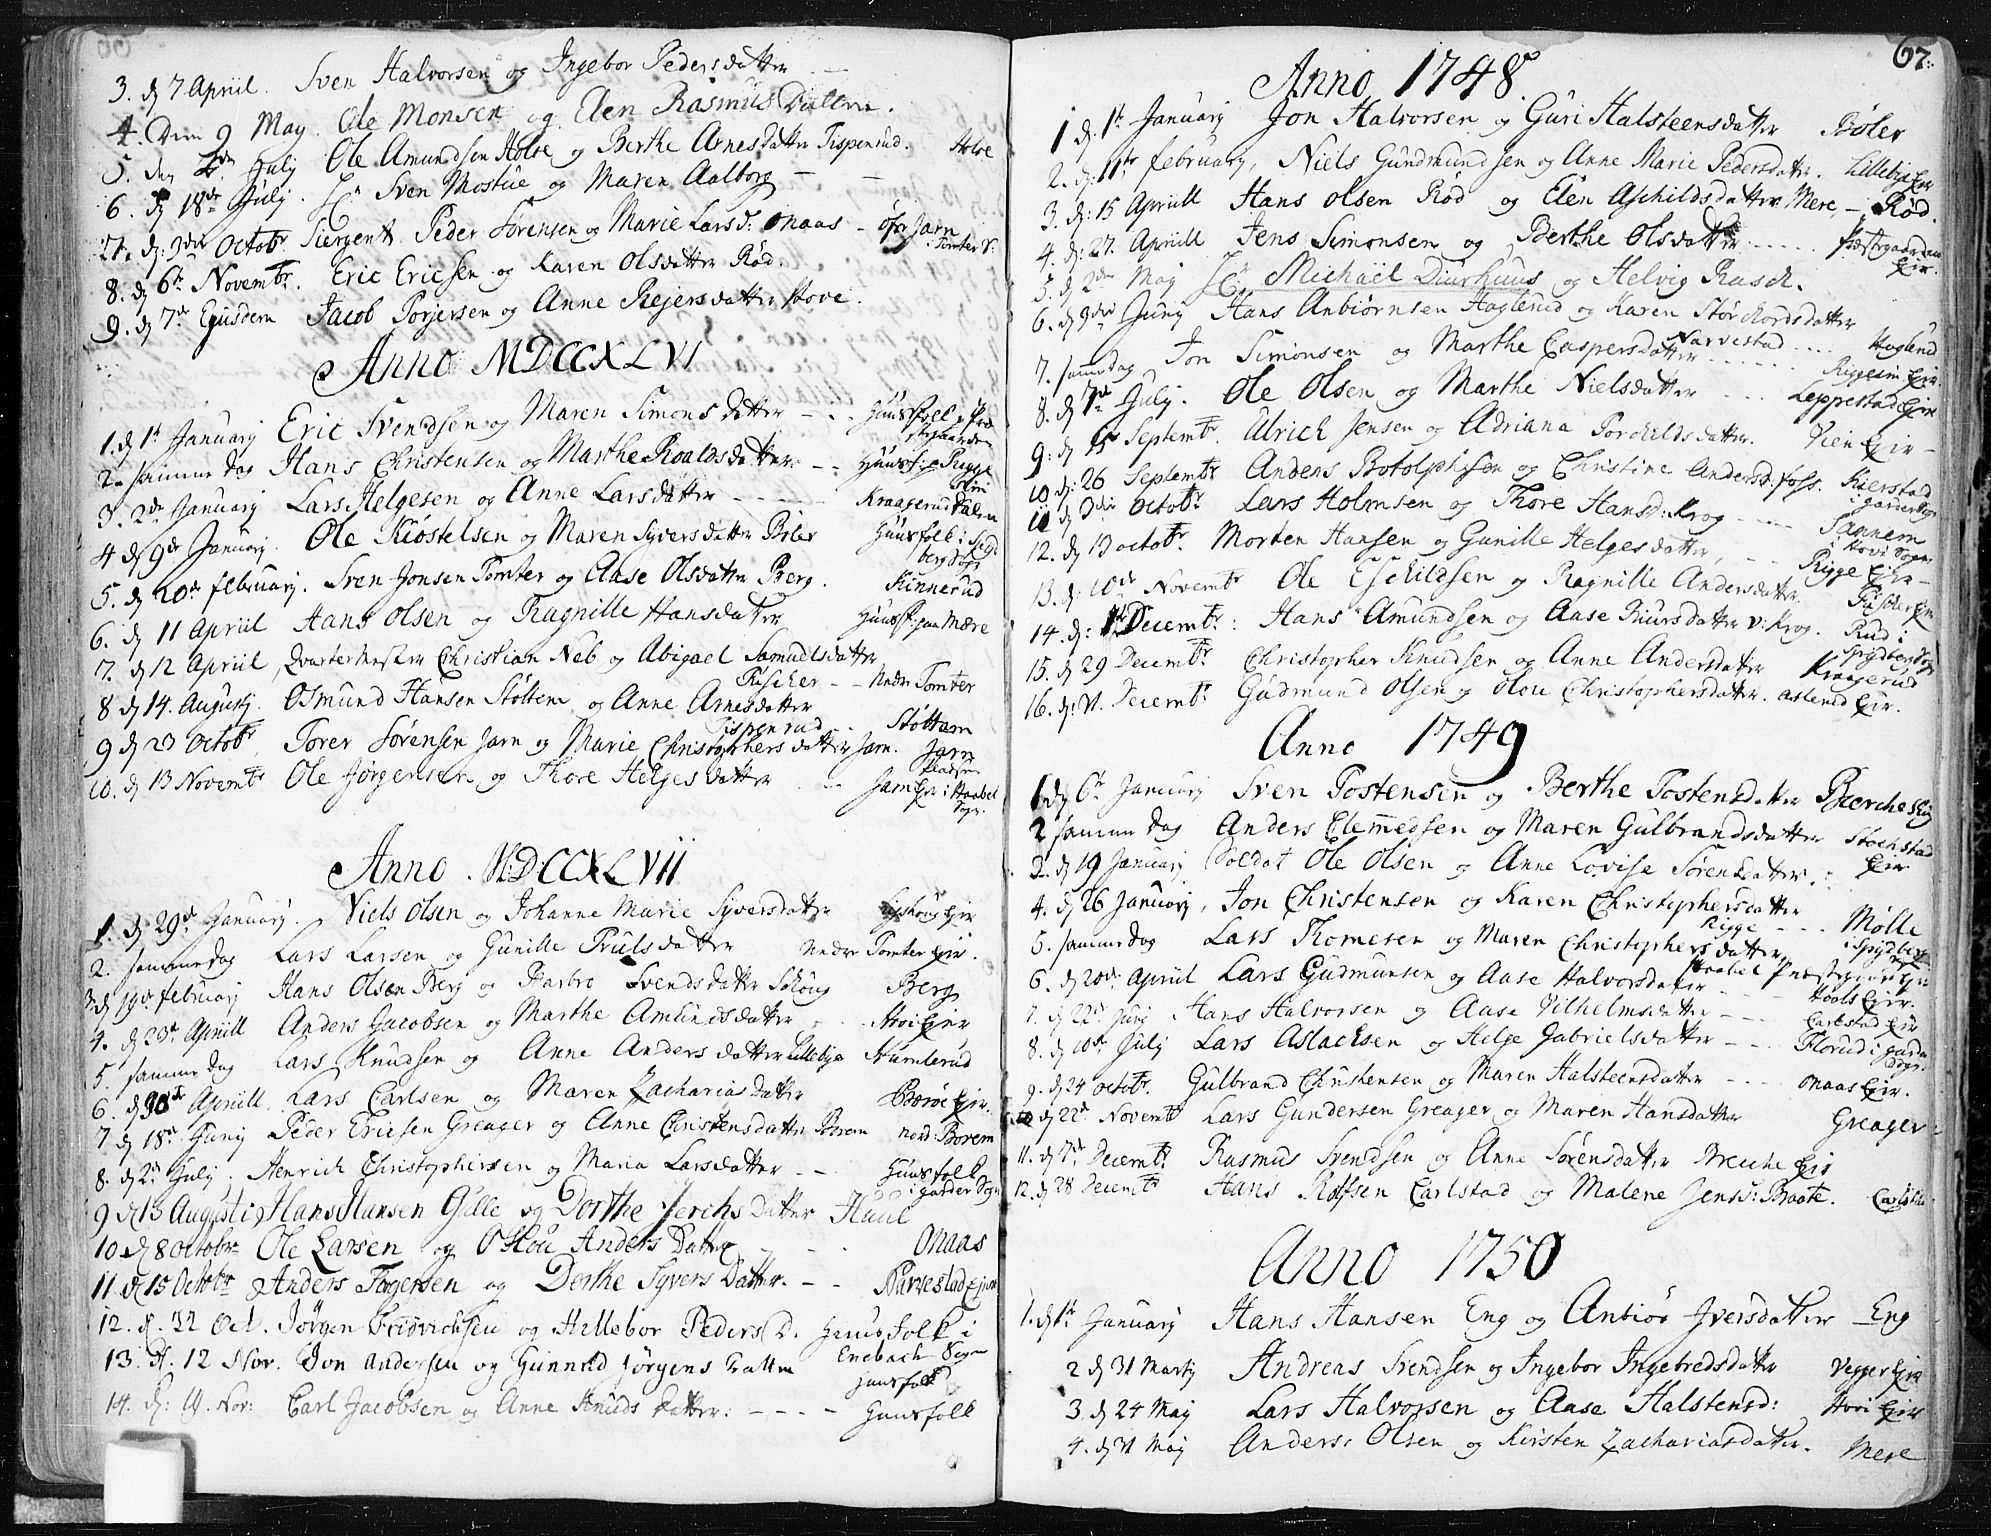 3. d 7 Apriil. Sven Halvorsen og Ingebor Pedersdatter
4. Den 9 May. Ole Monsen og Elen Rasmus Datter.
5. den July Ole Amundsen Holse og Berthe Arnesdatter Tispenrud.
6. d 18de July. Sven Mostue og Maren Aalborg
d: 3die Octobr. Siergent Peder Sørensen og Marie Larsd: Maas - Jarn
i Tomter
8. d 6te Novembr. Eric Ericsen og Karen Olsdatter Rød.
9. d 7de Ejusdem Jacob Torjersen og Anne Rejersdatter Hove.
Anno MDCCXLVI
1. d 1te January Eric Svendsen og Maren Simons datter - - Huusfolk
2. samme dag Hans Christensen og Marthe Roaldsdatter - - Huusf: Rygge
3. 2de January Lars Helgesen og Anne Larsdatter Kraagerud
4 d 9de January. Ole Kiøstelsen og Maren Syversdatter Bøler Huusfolk i Spyd
berg Sogn
5. d 20de february. Sven Jonsen Tomter og Aase Olsdatter Berg. Kinnerud
6. d 11 Apriil Hans Olsen og Ragnille Hansdatter Huusf: paa Mære
7. d 12 Apriil, Qvartermester Christian Neb og Abigael Samuelsdatter
Fischer - - Nedr Tomter
8 d 14. Augusty Osmund Hansen Støttem og Anne Arnesdatter
Tispenrud Støttem
9 d 23 Octobr. Torer Sørensen Jarn og Marie Christophersdatter Jarn. Jarn
Pladsen
10. d 13 Novembr Ole Jørgensen og Thore Helgesdatter Jarn Eir i Haabel
Sogn.
Anno MDCCXLVII
1. d 29de January. Niels Olsen og Johanne Marie Syversdatter
2. samme dag Lars Larsen og Gunille Trulsdatter Nedre Tomter Eir.
3. d 19de february Hans Olsen Berg og Barbro Svendsdatter Skoug Berg
4. d 23de Apriill Anders Jacobsen og Marthe Amundsdatter Hovi Eier
5. samme dag Lars Knudsen og Anne Andersdatter Lillebye Humlerud
6. d 30te Apriill. Lars Carlsen og Maren Zacharias datter Borøe Eir.
7 d 18de Juny Peder Ericsen Greager og Anne Christensdatter Borem nord: Borem
8. d 2de July. Henrich Christophersen og Maria Larsdatter - - Huusfolk
i garder Sogn
9 d 13 Augusti Hans Hansen Gille og Dorthe Jerichs datter Huul
10 d 8 Octobr Ole Larsen og Olou Anders Datter Maas
11 d 15 Octobr Anders Torgersen og Dorthe Syvers Datter. - - Narvestad Ejer
12. d. 22 Oct. Jørgen Fridrichsen og Hellebor Peders D. Huusfolk i
Enebach Sogn
13. d. 12 Nov. Jon Andersen og Gunnild Jørgens Datter
Huusfolk
14. d: 19. Nov: Carl Jacobsen og Anne Knuds datter: - - - Huusfolk
67.
Anno 1748.
1 d: 1te January Jon Halvorsen og Guri Halsteensdatter Bøler
2. d: 11te february, Niels Gundmundsen og Anne Marie Pedersdatter. Lillebye Eir
3. d: 15 Apriill Hans Olsen Rød og Elen Aschildsdatter Mere - Rød.
4. d: 27. Apriill Jens Simonsen og Berthe Olsdatter - - - - Præstegaarden
Eir.
5. d 2den May Hr. Michaël Diurhuus og Helvig Rasch.
6. d 3die Juny Hans Anbiørnsen Haglund og Karen Størchorsdatter
Narvestad - - - - Haglund
7. samme dag Jon Simonsen og Marthe Caspersdatter - - - - Riggesin Eir
8. d 7de July. Ole Olsen og Marthe Nielsdatter - - - Leppestad Eir
9. d Septembr. Ulrich Jensen og Adriana Torchildsdatter. Vien Eir -
10. d: 26 Septembr Anders Botolphsen og Christine Andersd: foss. Kierstad
i garder Sogn
11 d 3die Octobr Lars Holmsen og Thore Hansd: Krog - - - Sannem
i Hovi Sogn
12. d. 13 Octobr. Morten Hansen og Gunille Helgesdatter, Rigge Eir -
13. d: 10de Novembr Ole Eschildsen og Ragnille Andersdatter. Fischer Eir
14. d: 1te Decembr: Hans Amundsen og Aase Siursdatter v: Krog. Rud i
Spydberg Sogn
15. d 29 Decembr Christopher Knudsen og Anne Andersdatter Kraagerud
16. d: 31. Decembr Gudmund Olsen og Olou Christophersdatter. Aslerud Eir.
Anno 1749
1 d 6te January Sven Tostensen og Berthe Tostensdatter Bierche Eig
2 samme dag Anders Clemmedsen og Maren Gulbrandsdatter Stochstad
Eir
3. d 19 January Soldat Ole Olsen og Anne Lovise Sørensdatter.
4. d 26 January, Jon Christensen og Karen Christophersdatter
Rigge - - - Mølle
5. samme dag Lars Thomesen og Maren Christophersdatter i Spydberg
6. d 20de Apriil Lars Gudmunsen og Aase Halvorsdatter
7. d 22de Juny Hans Halvorsen og Aase Vilhelmsdatter - - Hoals Eir.
Carlstad Eir
8. d 10de July Lars Aslachsen og Helge Gabrielsdatter - - - Florud i garder
Sogn.
9. d 24 Octobr. Gulbrand Christensen og Maren Halsteensdatter - - - Maas Eir.
10 d 22de Novembr Lars Gundersen Greager og Maren Hansdatter Greager
11. d 7de Decembr. Rasmus Svendsen og Anne Sørensdatter Breche Eir
12. d 28 Decembr Hans Rolfsen Carlstad og Malene Jensd: Baate.
Anno 1750
1. d 1te January Hans Hansen Eng og Anbiør Iversdatter Eng
2 d 31 Marty Andreas Svendsen og Ingebor Ingebredsdatter Vegger Eir
3. d 24 May Lars Halvorsen og Aase Halstensd: Hovi Eir
4. d 31 May Anders Olsen og Kirsten Zachariasdatter. Mere